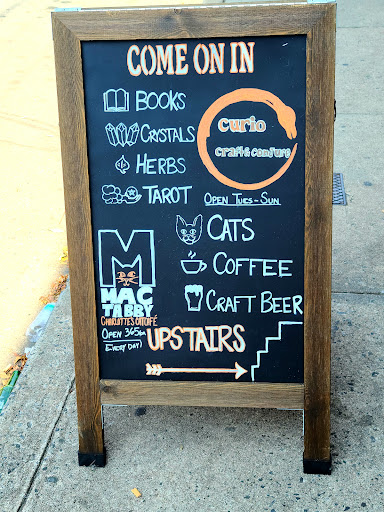 COME ON IN
BOOKS
CRYSTALS
HERBS
TAROT
curio
craft & conjure
OPEN TUES - SUN
CATS
COFFEE
CRAFT BEER
M
MAC
TABBY
CHARLOTTE'S CAT CAFÉ
OPEN 365
(EVERY DAY)
UPSTAIRS